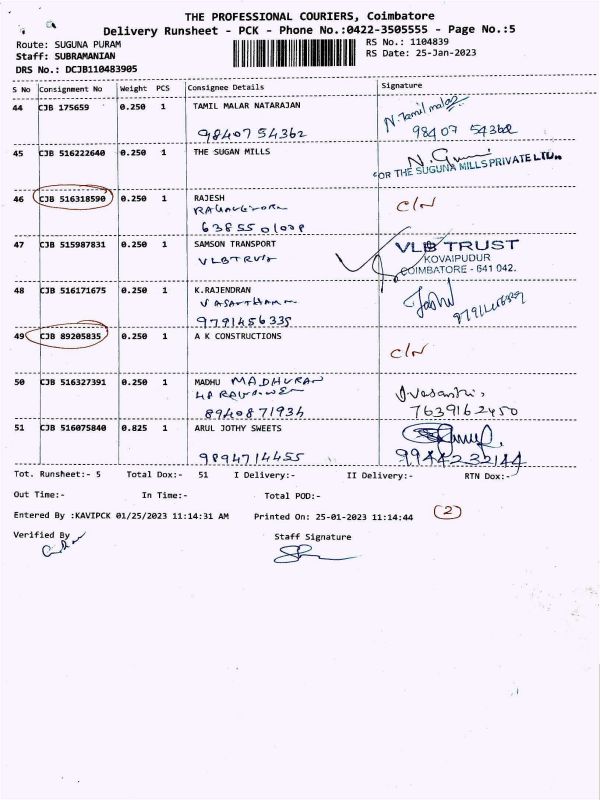 THE PROFESSIONAL COURIERS, Coimbatore
Delivery Runsheet - PCK - Phone No.:0422-3505555 - Page No.:5
Route: SUGUNA PURAM
RS No.: 1104839
Staff: SUBRAMANIAN
RS Date: 25-Jan-2023
DRS No.: DCJB110483905
S No Consignment No Weight PCS Consignee Details Signature
44 CJB 175659 0.250 1 TAMIL MALAR NATARAJAN N. Tamil malar
9840754362 98407 54362
45 CJB 516222640 0.250 1 THE SUGAN MILLS
FOR THE SUGUNA MILLS PRIVATE LTD.,
46 CJB 516318590 0.250 1 RAJESH C/N
47 CJB 515987831 0.250 1 SAMSON TRANSPORT VLB TRUST
VLB TRUST KOVAIPUDUR
COIMBATORE - 641 042.
48 CJB 516171675 0.250 1 K.RAJENDRAN
9791456335
49 CJB 89205835 0.250 1 A K CONSTRUCTIONS
C/N
50 CJB 516327391 0.250 1 MADHU MADHURAN
8940871934 7639162450
51 CJB 516075840 0.825 1 ARUL JOTHY SWEETS
9894714455 9944232144
Tot. Runsheet:- 5 Total Dox:- 51 I Delivery:- II Delivery:- RTN Dox:-
Out Time:- In Time:- Total POD:-
Entered By :KAVIPCK 01/25/2023 11:14:31 AM Printed On: 25-01-2023 11:14:44 (2)
Verified By Staff Signature